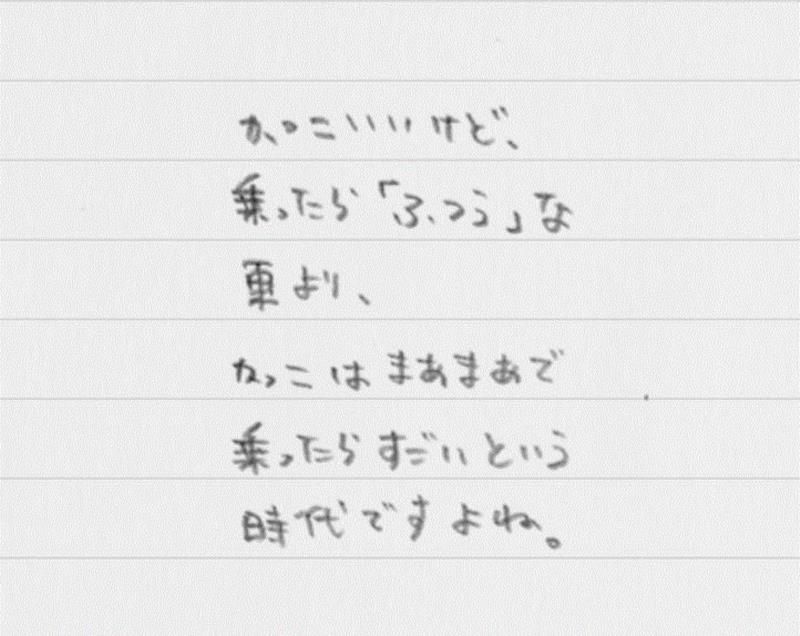 かっこいいけど、
乗ったら「ふつう」な
車より、
かっこはまあまあで
乗ったらすごいという
時代ですよね。